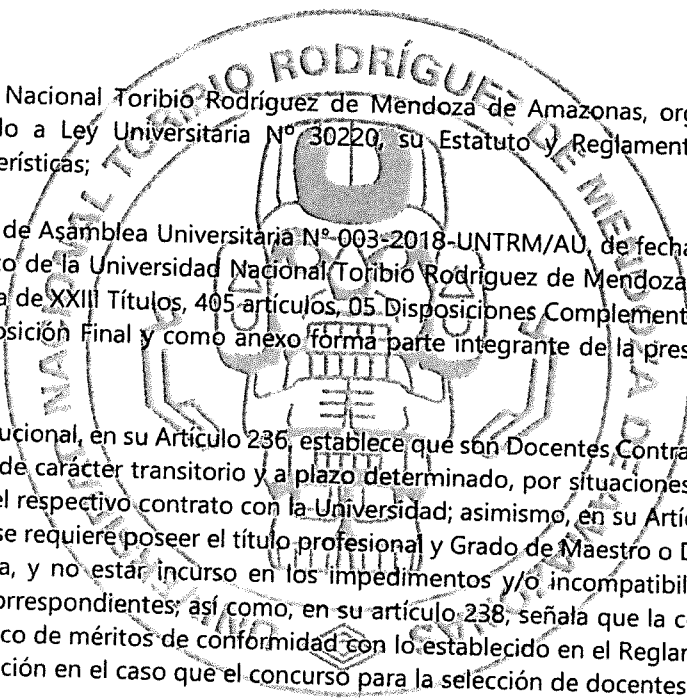 Nacional Toribio Rodríguez de Mendoza de Amazonas, org
lo a Ley Universitaria Nº 30220, su Estatuto y Reglament
erísticas;
de Asamblea Universitaria Nº 003-2018-UNTRM/AU, de fecha
to de la Universidad Nacional Toribio Rodríguez de Mendoza
a de XXIII Títulos, 405 artículos, 05 Disposiciones Complement
osición Final y como anexo forma parte integrante de la pres
ucional, en su Artículo 236, establece que son Docentes Contra
de carácter transitorio y a plazo determinado, por situaciones
el respectivo contrato con la Universidad; asimismo, en su Artíc
se requiere poseer el título profesional y Grado de Maestro o D
a, y no estar incurso en los impedimentos y/o incompatibil
orrespondientes; así como, en su artículo 238, señala que la c
ico de méritos de conformidad con lo establecido en el Reglan
ción en el caso que el concurso para la selección de docentes
NACIONAL TORIBIO RODRÍGUEZ DE MENDOZA DE AMAZONAS